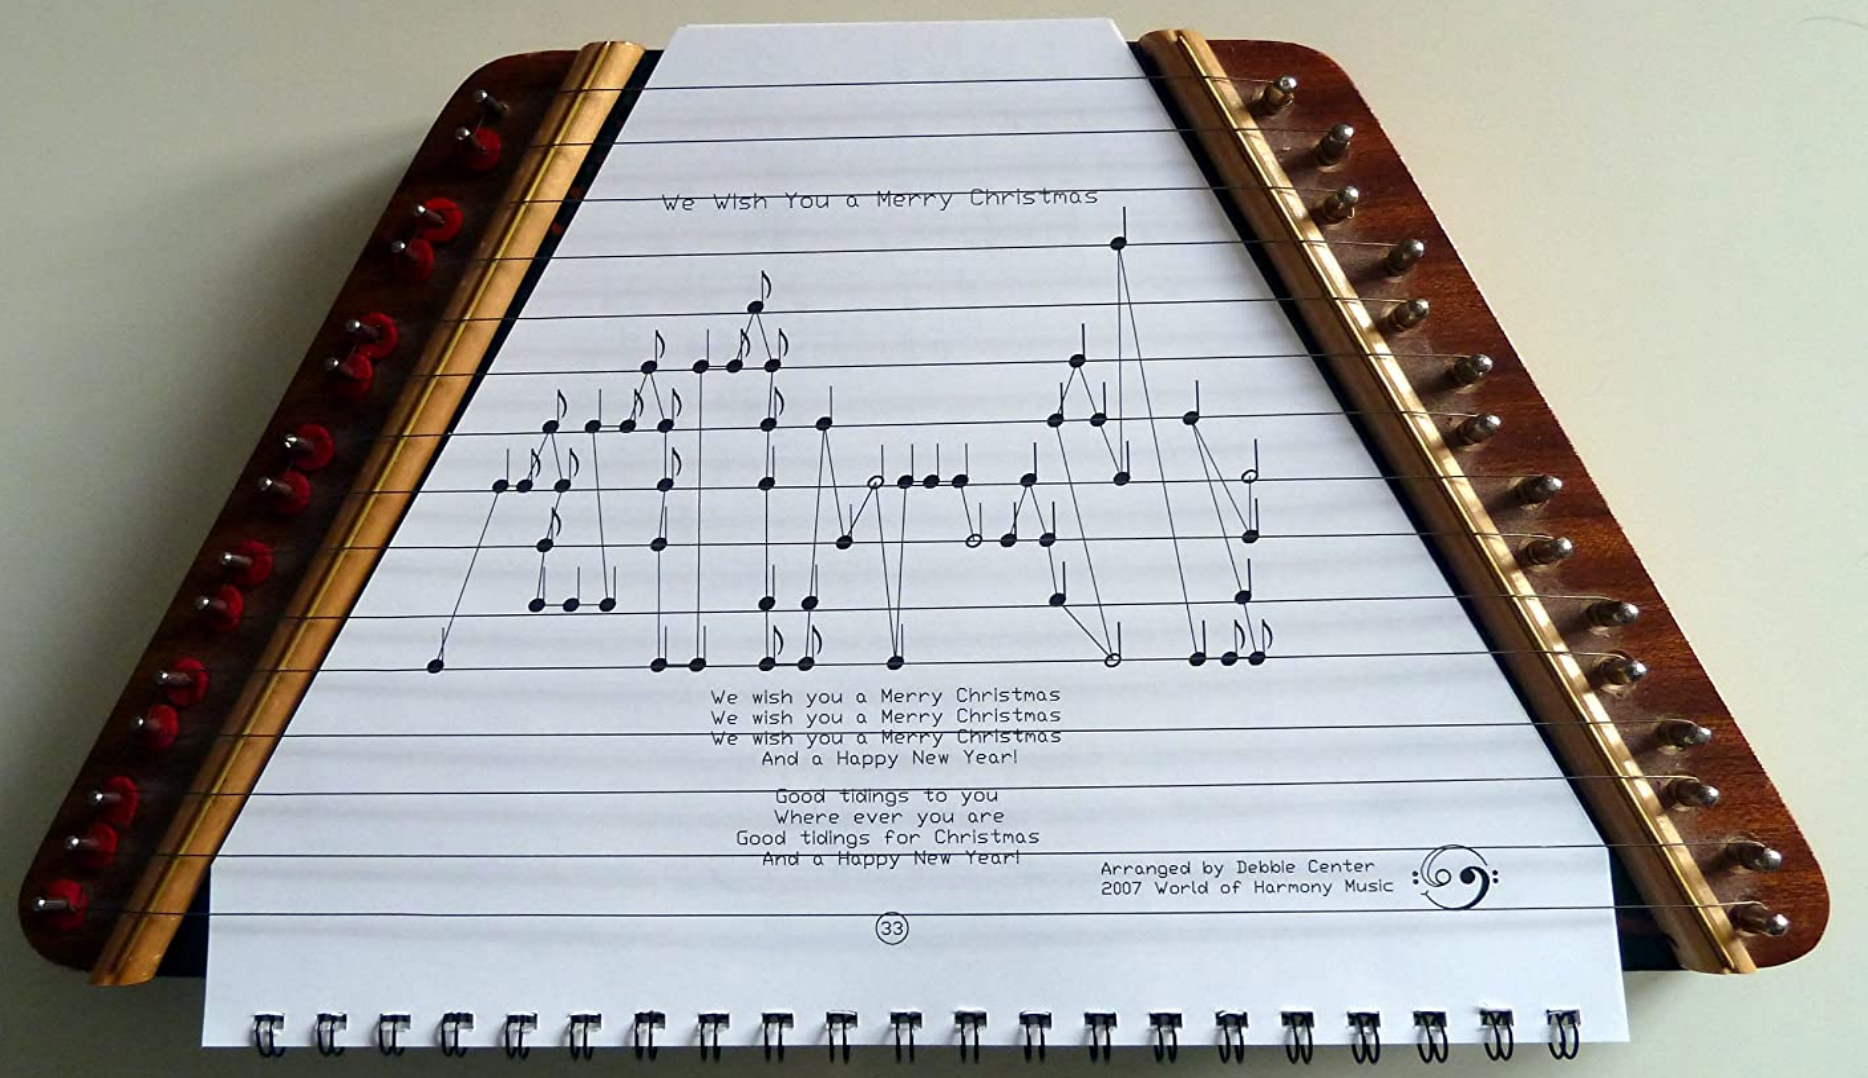 We Wish You a Merry Christmas
We wish you a Merry Christmas
We wish you a Merry Christmas
We wish you a Merry Christmas
And a Happy New Year!
Good tidings to you
Where ever you are
Good tidings for Christmas
And a Happy New Year!
Arranged by Debbie Center
2007 World of Harmony Music
33